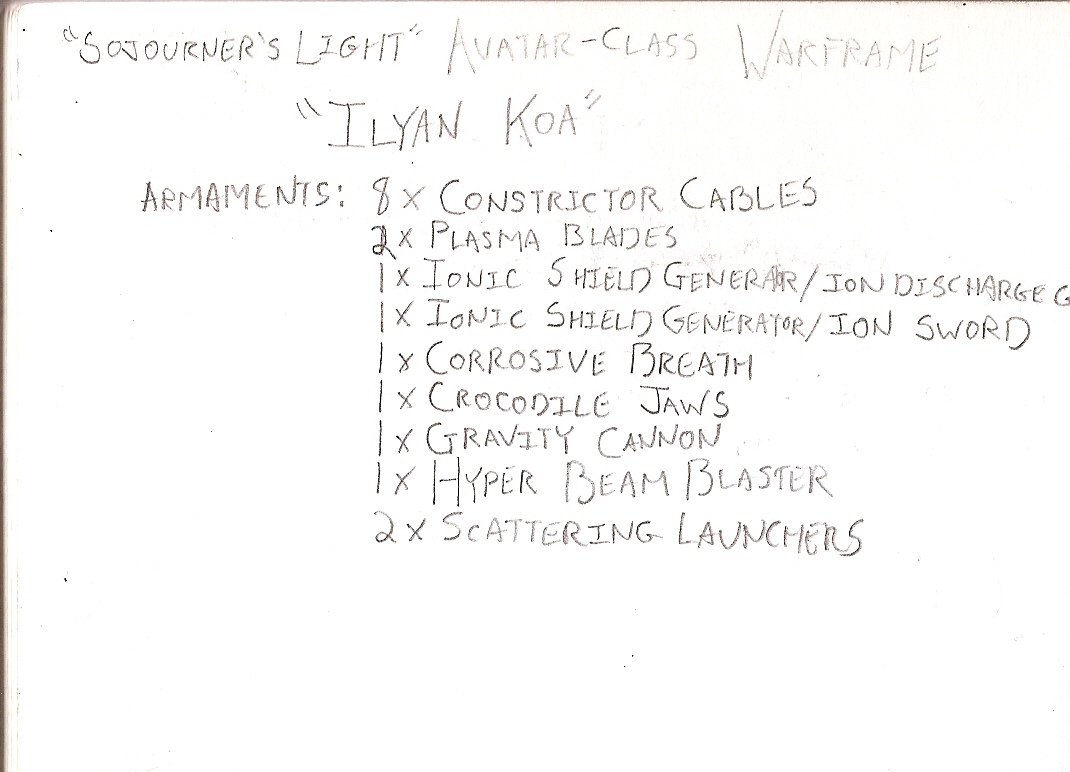 "SOJOURNER'S LIGHT" AVATAR-CLASS WARFRAME
"ILYAN KOA"
ARMAMENTS: 8 X CONSTRICTOR CABLES
2 X PLASMA BLADES
1 X IONIC SHIELD GENERATOR/ION DISCHARGE G
1 X IONIC SHIELD GENERATOR/ION SWORD
1 X CORROSIVE BREATH
1 X CROCODILE JAWS
1 X GRAVITY CANNON
1 X HYPER BEAM BLASTER
2 X SCATTERING LAUNCHERS